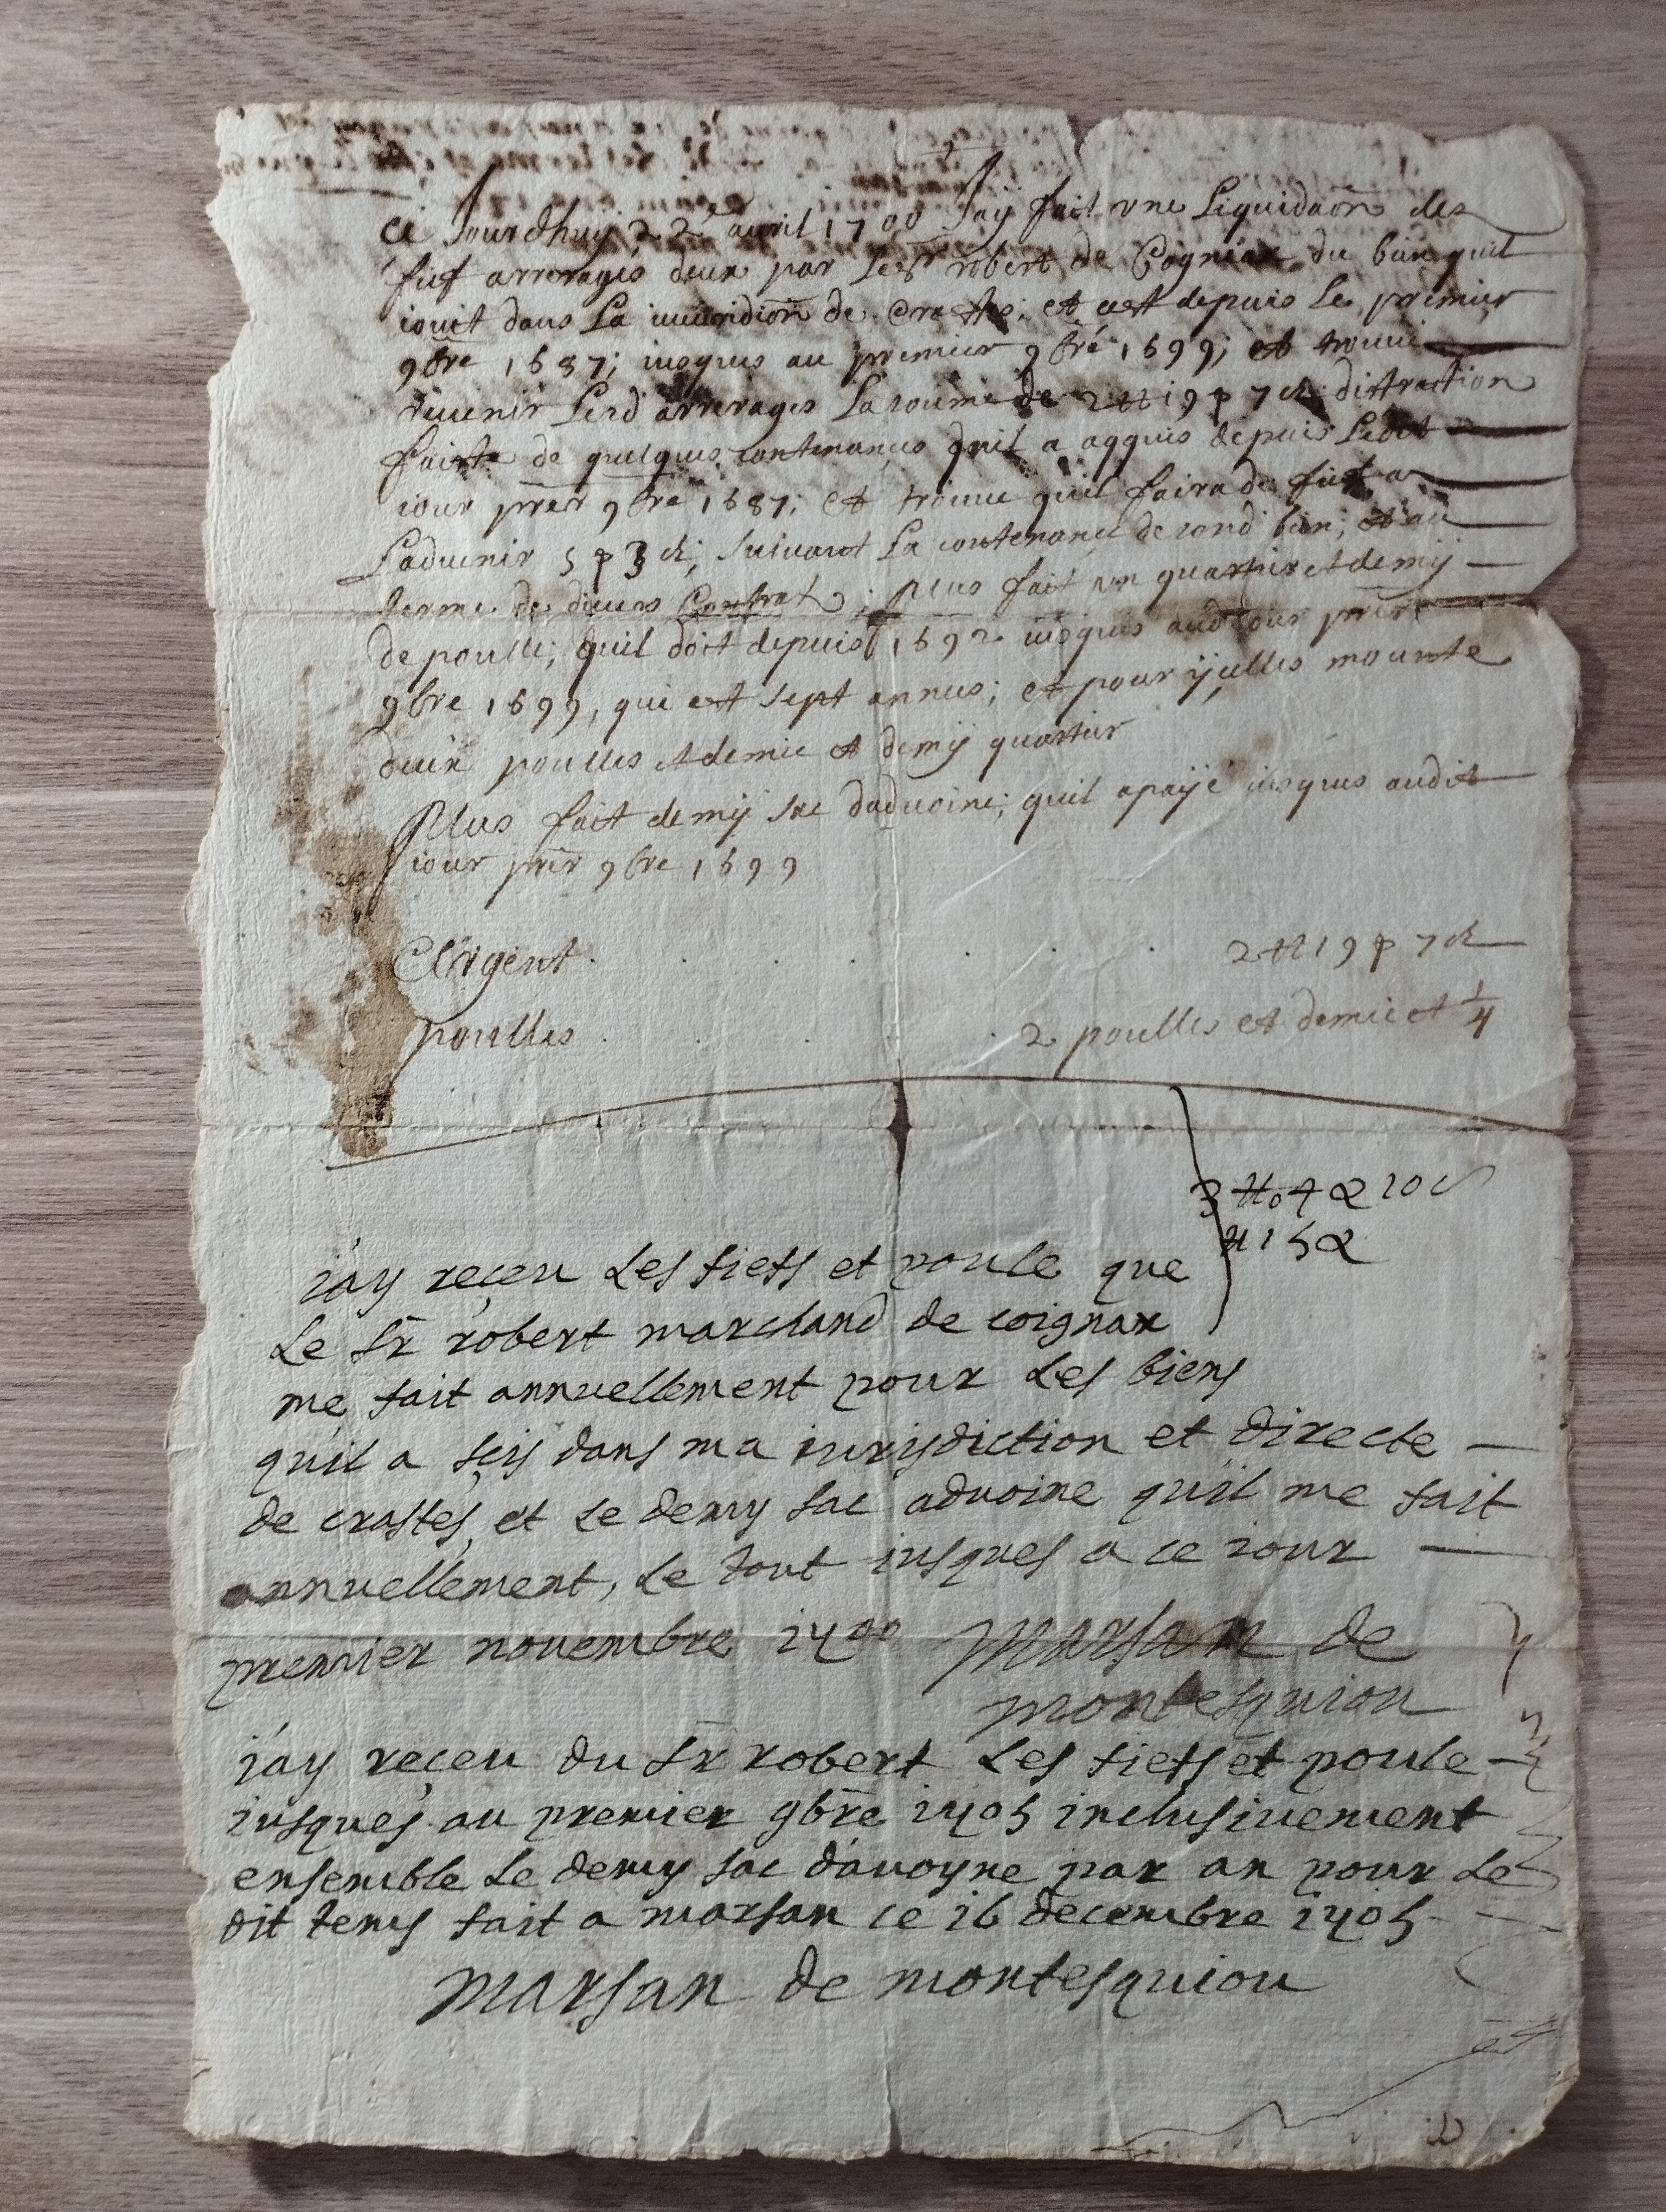 Ce Jourdhuy 22e auril 1700 Jay fait vne Liquidaõn des
fief arrerages deux par le Sr robert de Cognax du bien quil
iouit dans La iuuridion de Crastes; et cest depuis le premier
9bre 1687; iusques au premier 9bre 1699; et trouue
reuenir Lesd arrerages La somme de 2 ₶ 19 s 7 d distraction
faicte de quelques contenances quil a aqquis depuis Ledit
iour prer 9bre 1687; et trouue quil faira de fief a
Laduenir 5 s 3 d; suiuant La contenance de sond bien; et au
terme de diuers Contrat; Plus fait vn quartier et demÿ
de poulle; quil doit depuis 1692 iusques aud iour prer
9bre 1699, qui est sept annes; et pour ÿcelles mounte
deux poulles et demie et demÿ quartier
Plus fait demÿ sac daduoine; quil a paÿé iusques audit
iour prer 9bre 1699
Argent . . . . . 2 ₶ 19 s 7 d
poulles . . . . 2 poulles et demie et 1/4
3 ₶ 04 s 10 d
₶ 15 s
i'ay reçeu Les fiefs et poule que
Le sr robert marchand de coignax
me fait annuellement pour Les biens
qu'il a scis dans ma iurisdiction et directe
de crastes, et Le demy sac advoine qu'il me fait
annuellement, Le tout iusques a ce iour
premier nouembre 1700 Marsan de
montesquiou
i'ay reçeu du sr robert Les fiefs et poule
iusques au premier 9bre 1705 inclusiuement
ensemble Le demy sac d'auoyne par an pour Le
dit tems fait a marsan ce 16 decembre 1705
Marsan de montesquiou